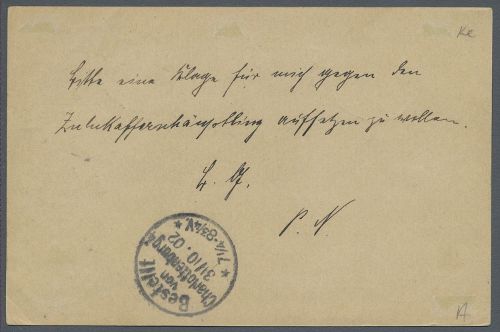 Kl
Bitte eine Klage für mich gegen den
Zulukaffernhäuptling aufsetzen zu wollen.
L. G.
P. N.
Bestellt
von
Charlottenburg 2
31/10.02
* 7¼-8¾V. *